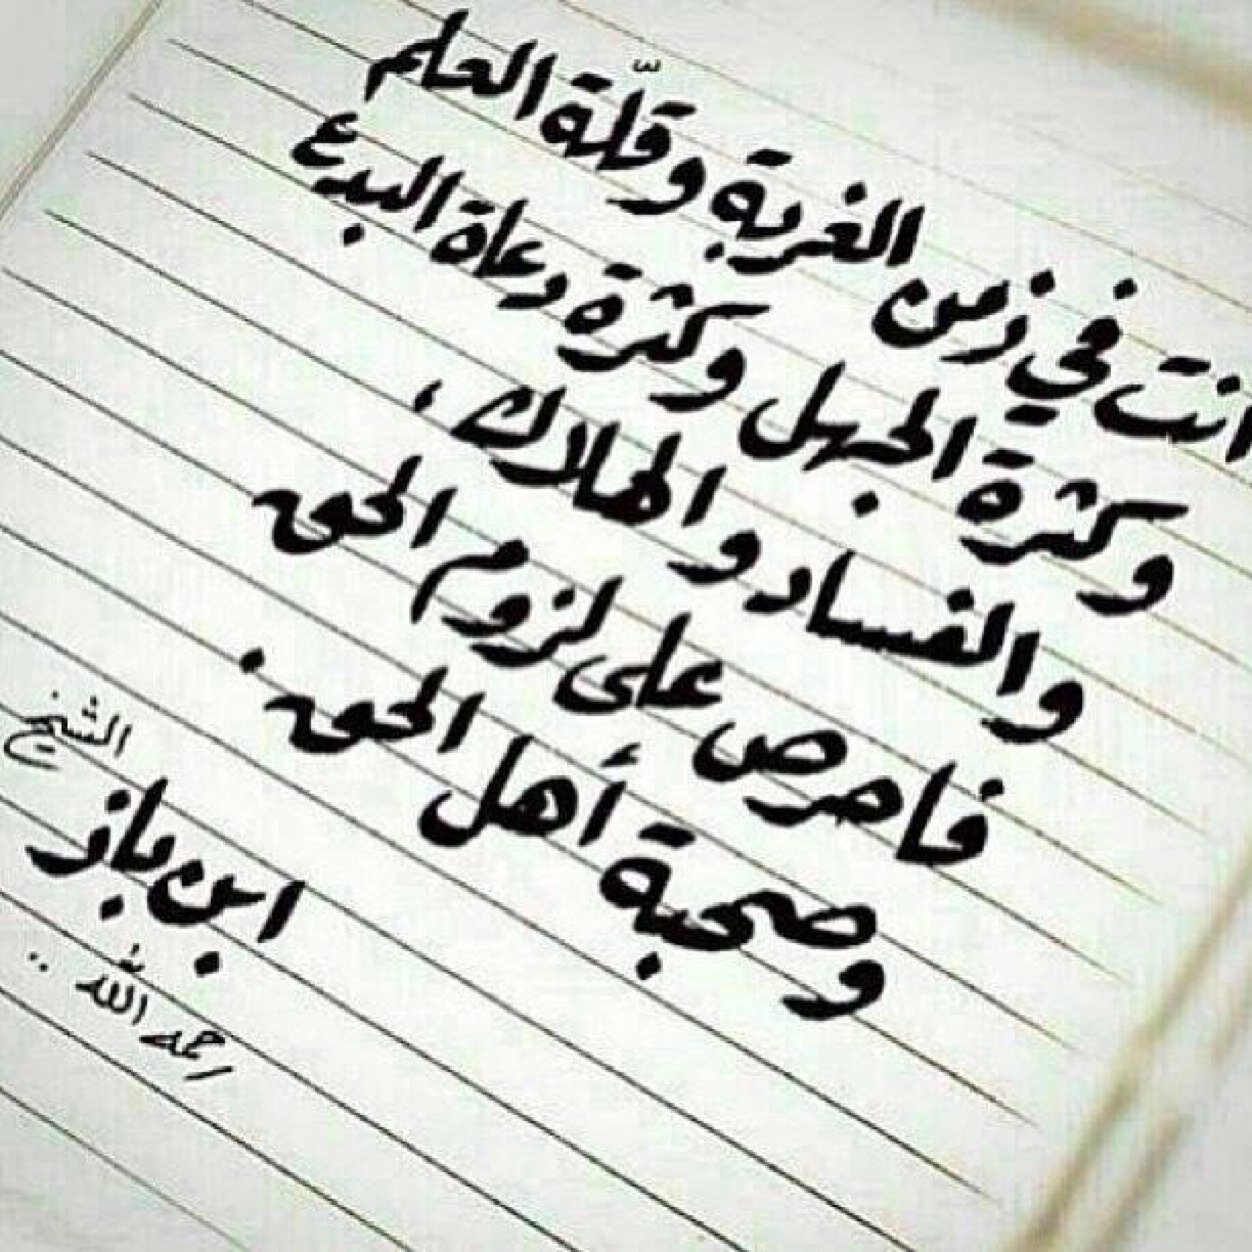 انت في زمن الغربة وقلّة العلم
وكثرة الجهل وكثرة دعاة البدع
والفساد والهلاك ،
فاحرص على لزوم الحق
وصحبة أهل الحق .
الشيخ
ابن باز
رحمه الله ..